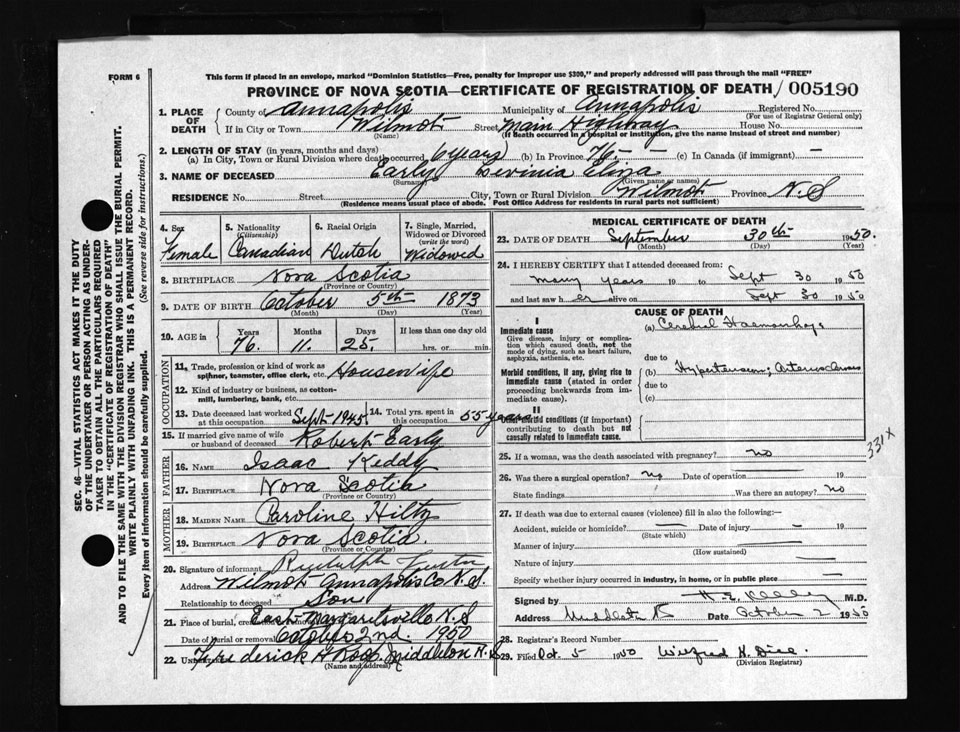 FORM 6
This form if placed in an envelope, marked "Dominion Statistics—Free, penalty for improper use $300," and properly addressed will pass through the mail "FREE"
PROVINCE OF NOVA SCOTIA—CERTIFICATE OF REGISTRATION OF DEATH / 005190
1. PLACE OF DEATH County of Annapolis Municipality of Annapolis Registered No.
(For use of Registrar General only)
If in City or Town Wilmot Street Main Highway House No.
(Name) (If death occurred in a hospital or institution, give the name instead of street and number)
2. LENGTH OF STAY (in years, months and days)
(a) In City, Town or Rural Division where death occurred (6 years) (b) In Province 76 - - (c) In Canada (if immigrant) —
3. NAME OF DECEASED Early Levinia Eliza
(Surname) (Given name or names)
RESIDENCE No. Street City, Town or Rural Division Wilmot Province N.S
(Residence means usual place of abode. Post Office Address for residents in rural parts not sufficient)
4. Sex Female
5. Nationality (Citizenship) Canadian
6. Racial Origin Dutch
7. Single, Married, Widowed or Divorced (write the word) Widowed
8. BIRTHPLACE Nova Scotia
(Province or Country)
9. DATE OF BIRTH October 5th 1873
(Month) (Day) (Year)
10. AGE in Years Months Days If less than one day old
76. 11. 25. hrs. or min.
OCCUPATION
11. Trade, profession or kind of work as spinner, teamster, office clerk, etc. Housewife
12. Kind of industry or business, as cotton-mill, lumbering, bank, etc.
13. Date deceased last worked at this occupation Sept 1945 14. Total yrs. spent in this occupation 55 years
15. If married give name of wife or husband of deceased Robert Early
FATHER
16. NAME Isaac Keddy
17. BIRTHPLACE Nova Scotia
(Province or Country)
MOTHER
18. MAIDEN NAME Caroline Hiltz
19. BIRTHPLACE Nova Scotia.
(Province or Country)
20. Signature of informant Rudulph
Address Wilmot Annapolis Co N.S.
Relationship to deceased Son
21. Place of burial, East Margaretsville N.S
Date of burial or removal October 2nd. 1950
22. Frederick H Roop, Middleton N.S
(Name and address)
MEDICAL CERTIFICATE OF DEATH
23. DATE OF DEATH September 30th 1950.
(Month) (Day) (Year)
24. I HEREBY CERTIFY that I attended deceased from:
many years 19 to Sept 30 1950
and last saw h er alive on Sept 30 1950
CAUSE OF DEATH
I
Immediate cause
Give disease, injury or complication which caused death, not the mode of dying, such as heart failure, asphyxia, asthenia, etc.
(a) Cerebral Haemorrhage
due to
Morbid conditions, if any, giving rise to immediate cause (stated in order proceeding backwards from immediate cause).
(b) Hypertension; Arteriosclerosis
due to
(c)
II
Other morbid conditions (if important) contributing to death but not causally related to immediate cause.
331X
25. If a woman, was the death associated with pregnancy? no
26. Was there a surgical operation? no Date of operation 19
State findings Was there an autopsy? no
27. If death was due to external causes (violence) fill in also the following:—
Accident, suicide or homicide? — Date of injury — 19
(State which)
Manner of injury —
(How sustained)
Nature of injury —
Specify whether injury occurred in industry, in home, or in public place —
Signed by M.D.
Address Date October 2 1950
28. Registrar's Record Number
29. Filed Oct. 5 1950 Wilfred H.
(Division Registrar)
SEC. 46—VITAL STATISTICS ACT MAKES IT THE DUTY
OF THE UNDERTAKER OR PERSON ACTING AS UNDERTAKER TO OBTAIN ALL THE PARTICULARS REQUIRED
IN THE "CERTIFICATE OF REGISTRATION OF DEATH"
AND TO FILE THE SAME WITH THE DIVISION REGISTRAR WHO SHALL ISSUE THE BURIAL PERMIT.
WRITE PLAINLY WITH UNFADING INK. THIS IS A PERMANENT RECORD.
Every item of information should be carefully supplied. (See reverse side for instructions.)